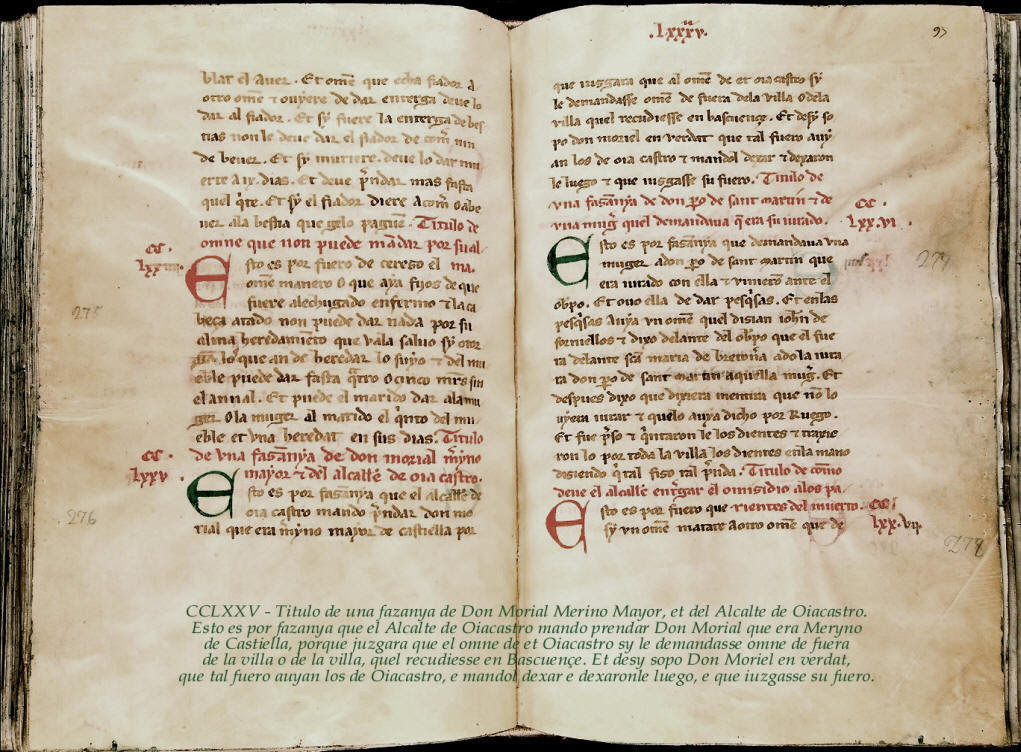 blar el Auer. Et om̄e que echa fiador A
otro om̄e τ ouyere de dar enterga deue lo
dar al fiador. Et sy fuere la enterga de bes
tias non le deue dar el fiador de com̄ nin
de beuer. Et sy muriere deue lo dar mu
erte A ix. dias. Et deue p̄ndar mas fasta
quel q̄te. Et sy el fiador diere A com̄ O abe
uer ala bestia que gelo pagu̅e. Titulo de
omne que non puede mādar por su al
CC.
lxxiiij.
Esto es por fuero de cerego el ma.
om̄e manero O que aya fijos de que
fuere alechugado enfermo τ la ca
beça atado non puede dar nada por su
alma heredamiēto que vala saluo sy otor
gā los que an de heredar lo suyo τ del mu
eble puede dar fasta q̄tro O cinco mrs sin
el annal. Et puede el marido dar ala mu
ger O la muger al marido el q̄nto del mu
eble et vna heredat en sus dias. Titulo
CC.
lxxv.
de vna fasānya de don morial m̄yno
mayor τ del alcall̄e de oia castro.
Esto es por fasānya que el alcall̄e de
oia castro mando p̄ndar don mo
rial que era m̄yno mayor de castiella por
275
276
.lxxxv.
97
que iusgara que al om̄e de et oia castro sy
le demandasse om̄e de fuera dela villa O dela
villa quel recudiesse en bascuençe. Et desy so
po don moriel en verdat que tal fuero auy
an los de oia castro τ mandol dexar τ dexaron
le luego τ que iusgasse su fuero. Titulo de
vna fasānya de don p̄o de sant martin τ de
vna mug̃ quel demandaua q̄ era su iurado.
CC.
lxx.vi.
Esto es por fasānya que demandaua vna
muger a don p̄o de sant martin que
era iurado con ella τ vinierō ante el
obp̄o. Et ouo ella de dar pesq̄sas. Et en las
pesq̄sas Auya vn om̄e quel disian ioh̄n de
forniellos τ dixo delante del ob̄po que el fue
ra delante sc̄a maria de bretoñ̄a ado la iura
ra don p̄o de sant martin aquella mug̃. Et
despues dixo que dixiera mentira que nō lo
uyera iurar τ quelo auya dicho por Ruego.
Et fue p̄so τ q̄ntaron le los dientes τ traxie
ron lo por toda la villa los dientes enla mano
disiendo q̄ tal fiso tal p̄nda. Titulo de cōmo
deue el alcall̄e ent̃gar el omisidio alos pa.
rientes del muerto.
CC.
lxx.vij.
Esto es por fuero que
sy vn om̄e matare A otro om̄e que de
277
278
CCLXXV - Titulo de una fazanya de Don Morial Merino Mayor, et del Alcalte de Oiacastro.
Esto es por fazanya que el Alcalte de Oiacastro mando prendar Don Morial que era Meryno
de Castiella, porque juzgara que el omne de et Oiacastro sy le demandasse omne de fuera
de la villa o de la villa, quel recudiesse en Bascuençe. Et desy sopo Don Moriel en verdat,
que tal fuero auyan los de Oiacastro, e mandol dexar e dexaronle luego, e que iuzgasse su fuero.